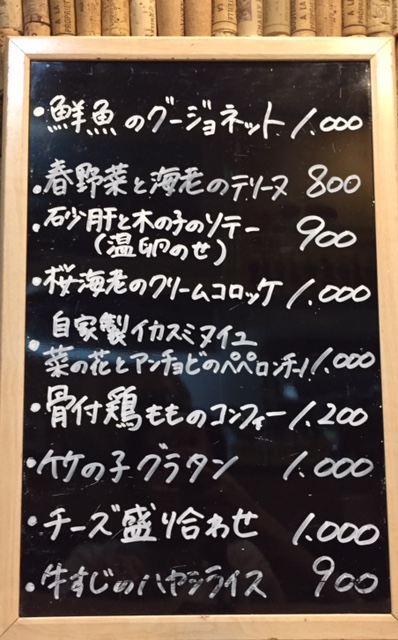 ・鮮魚のグージョネット 1.000
・春野菜と海老のテリーヌ 800
・砂肝と木の子のソテー 900
(温卵のせ)
・桜海老のクリームコロッケ 1.000
自家製イカスミヌイユ
・菜の花とアンチョビのペペロンチーノ 1.000
・骨付鶏もものコンフィー 1.200
・竹の子グラタン 1.000
・チーズ盛り合わせ 1.000
・牛すじのハヤシライス 900